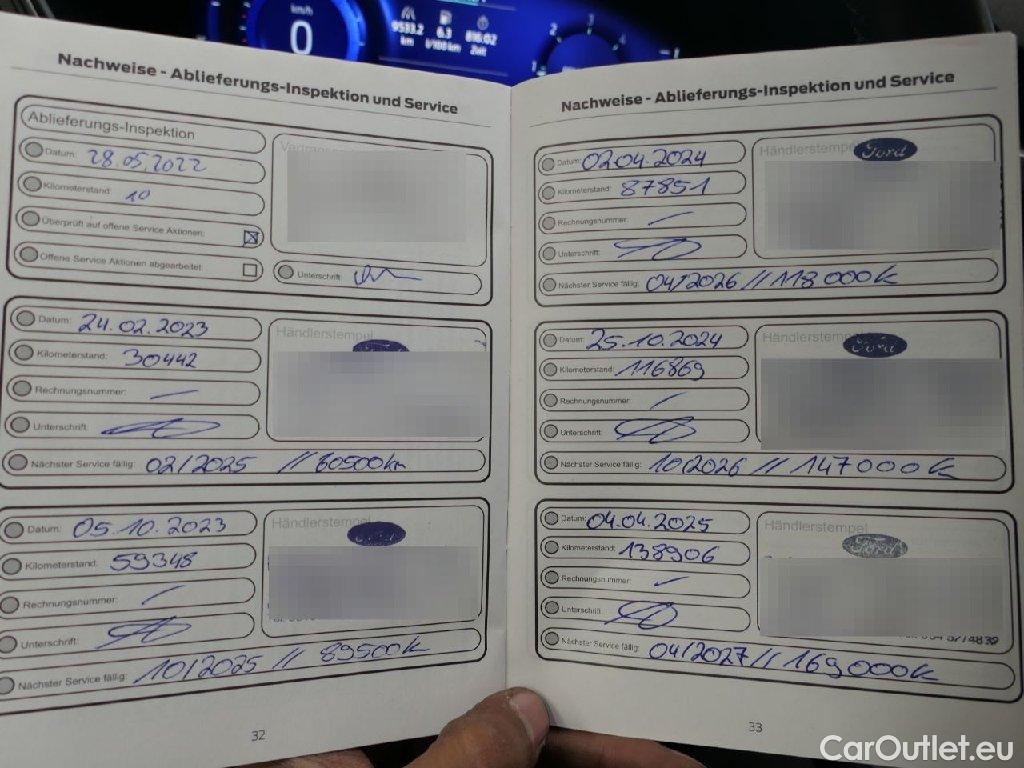 km/h
0
9533.2
km
6.3
l/100 km
816:02
Zeit
2
3
Nachweise - Ablieferungs-Inspektion und Service
Ablieferungs-Inspektion
Datum: 28.05.2022
Kilometerstand: 10
Überprüft auf offene Service Aktionen:
Offene Service Aktionen abgearbeitet
Unterschrift:
Datum: 24.02.2023
Händlerstempel
Ford
Kilometerstand: 30442
Rechnungsnummer: —
Unterschrift:
Nächster Service fällig: 02/2025 // 60500km
Datum: 05.10.2023
Händlerstempel
Kilometerstand: 59348
Rechnungsnummer: —
Unterschrift:
Nächster Service fällig: 10/2025 // 89500k
32
Nachweise - Ablieferungs-Inspektion und Service
Datum: 02.04.2024
Händlerstempel
Ford
Kilometerstand: 87851
Rechnungsnummer: —
Unterschrift:
Nächster Service fällig: 04/2026 // 118000k
Datum: 25.10.2024
Händlerstempel
Ford
Kilometerstand: 116869
Rechnungsnummer: —
Unterschrift:
Nächster Service fällig: 10/2026 // 147000k
Datum: 04.04.2025
Händlerstempel
Ford
Kilometerstand: 138906
Rechnungsnummer: —
Unterschrift:
Nächster Service fällig: 04/2027 // 169000k
33
CarOutlet.eu